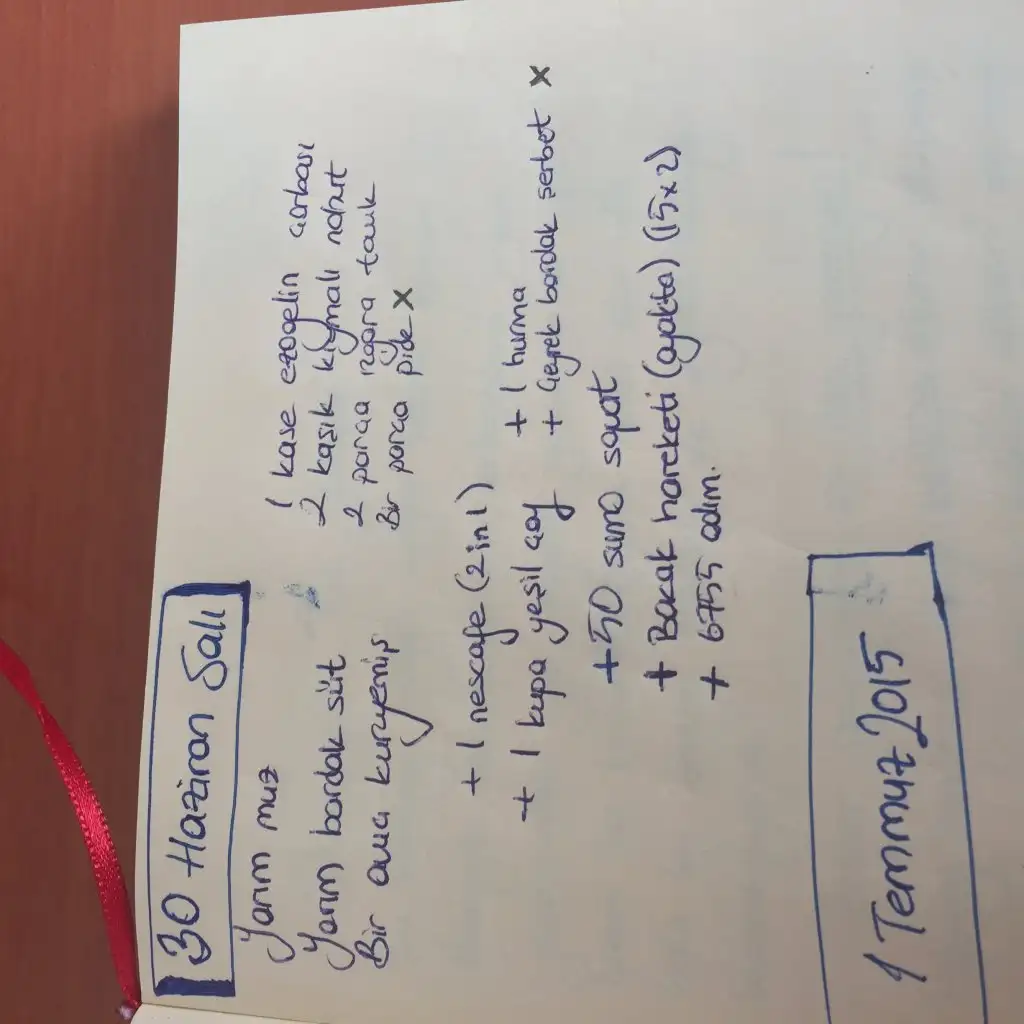 30 Haziran Salı
Yarım muz
Yarım bardak süt
Bir avuç kuruyemiş
1 kase ezogelin çorbası
2 kaşık kıymalı nohut
2 parça ızgara tavuk
Bir parça pide X
+ 1 nescafe (2 in 1)
+ 1 kupa yeşil çay
+ 1 hurma
+ Çeyrek bardak serbet X
+ 50 sumo squat
+ Bacak hareketi (ayakta) (15x2)
+ 6755 adım.
1 Temmuz 2015